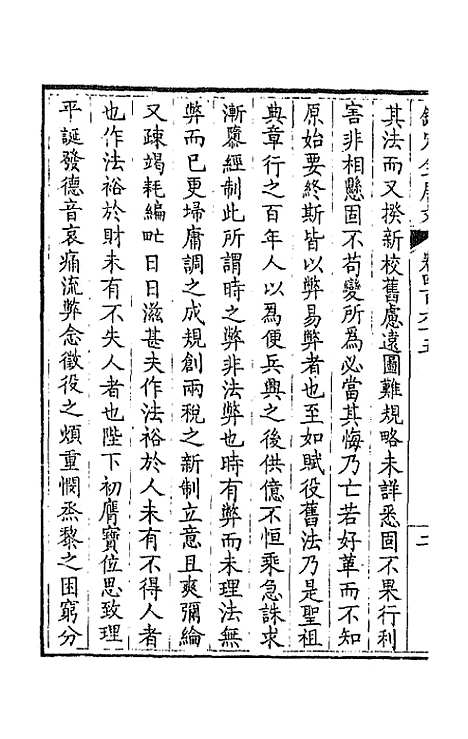 欽定全唐文
卷四百六十五
二
其法而又揆新校舊慮遠圖難規略未詳悉固不果行利
害非相懸固不苟變所爲必當其悔乃亡若好革而不知
原始要終斯皆以弊易弊者也至如賦役舊法乃是聖祖
典章行之百年人以爲便兵興之後供億不恒乘急誅求
漸隳經制此所謂時之弊非法弊也時有弊而未理法無
弊而已更埽庸調之成規創兩稅之新制立意且爽彌綸
又疎竭耗編甿日日滋甚夫作法裕於人未有不得人者
也作法裕於財未有不失人者也陛下初膺寶位思致理
平誕發德音哀痛流弊念徵役之煩重憫烝黎之困窮分